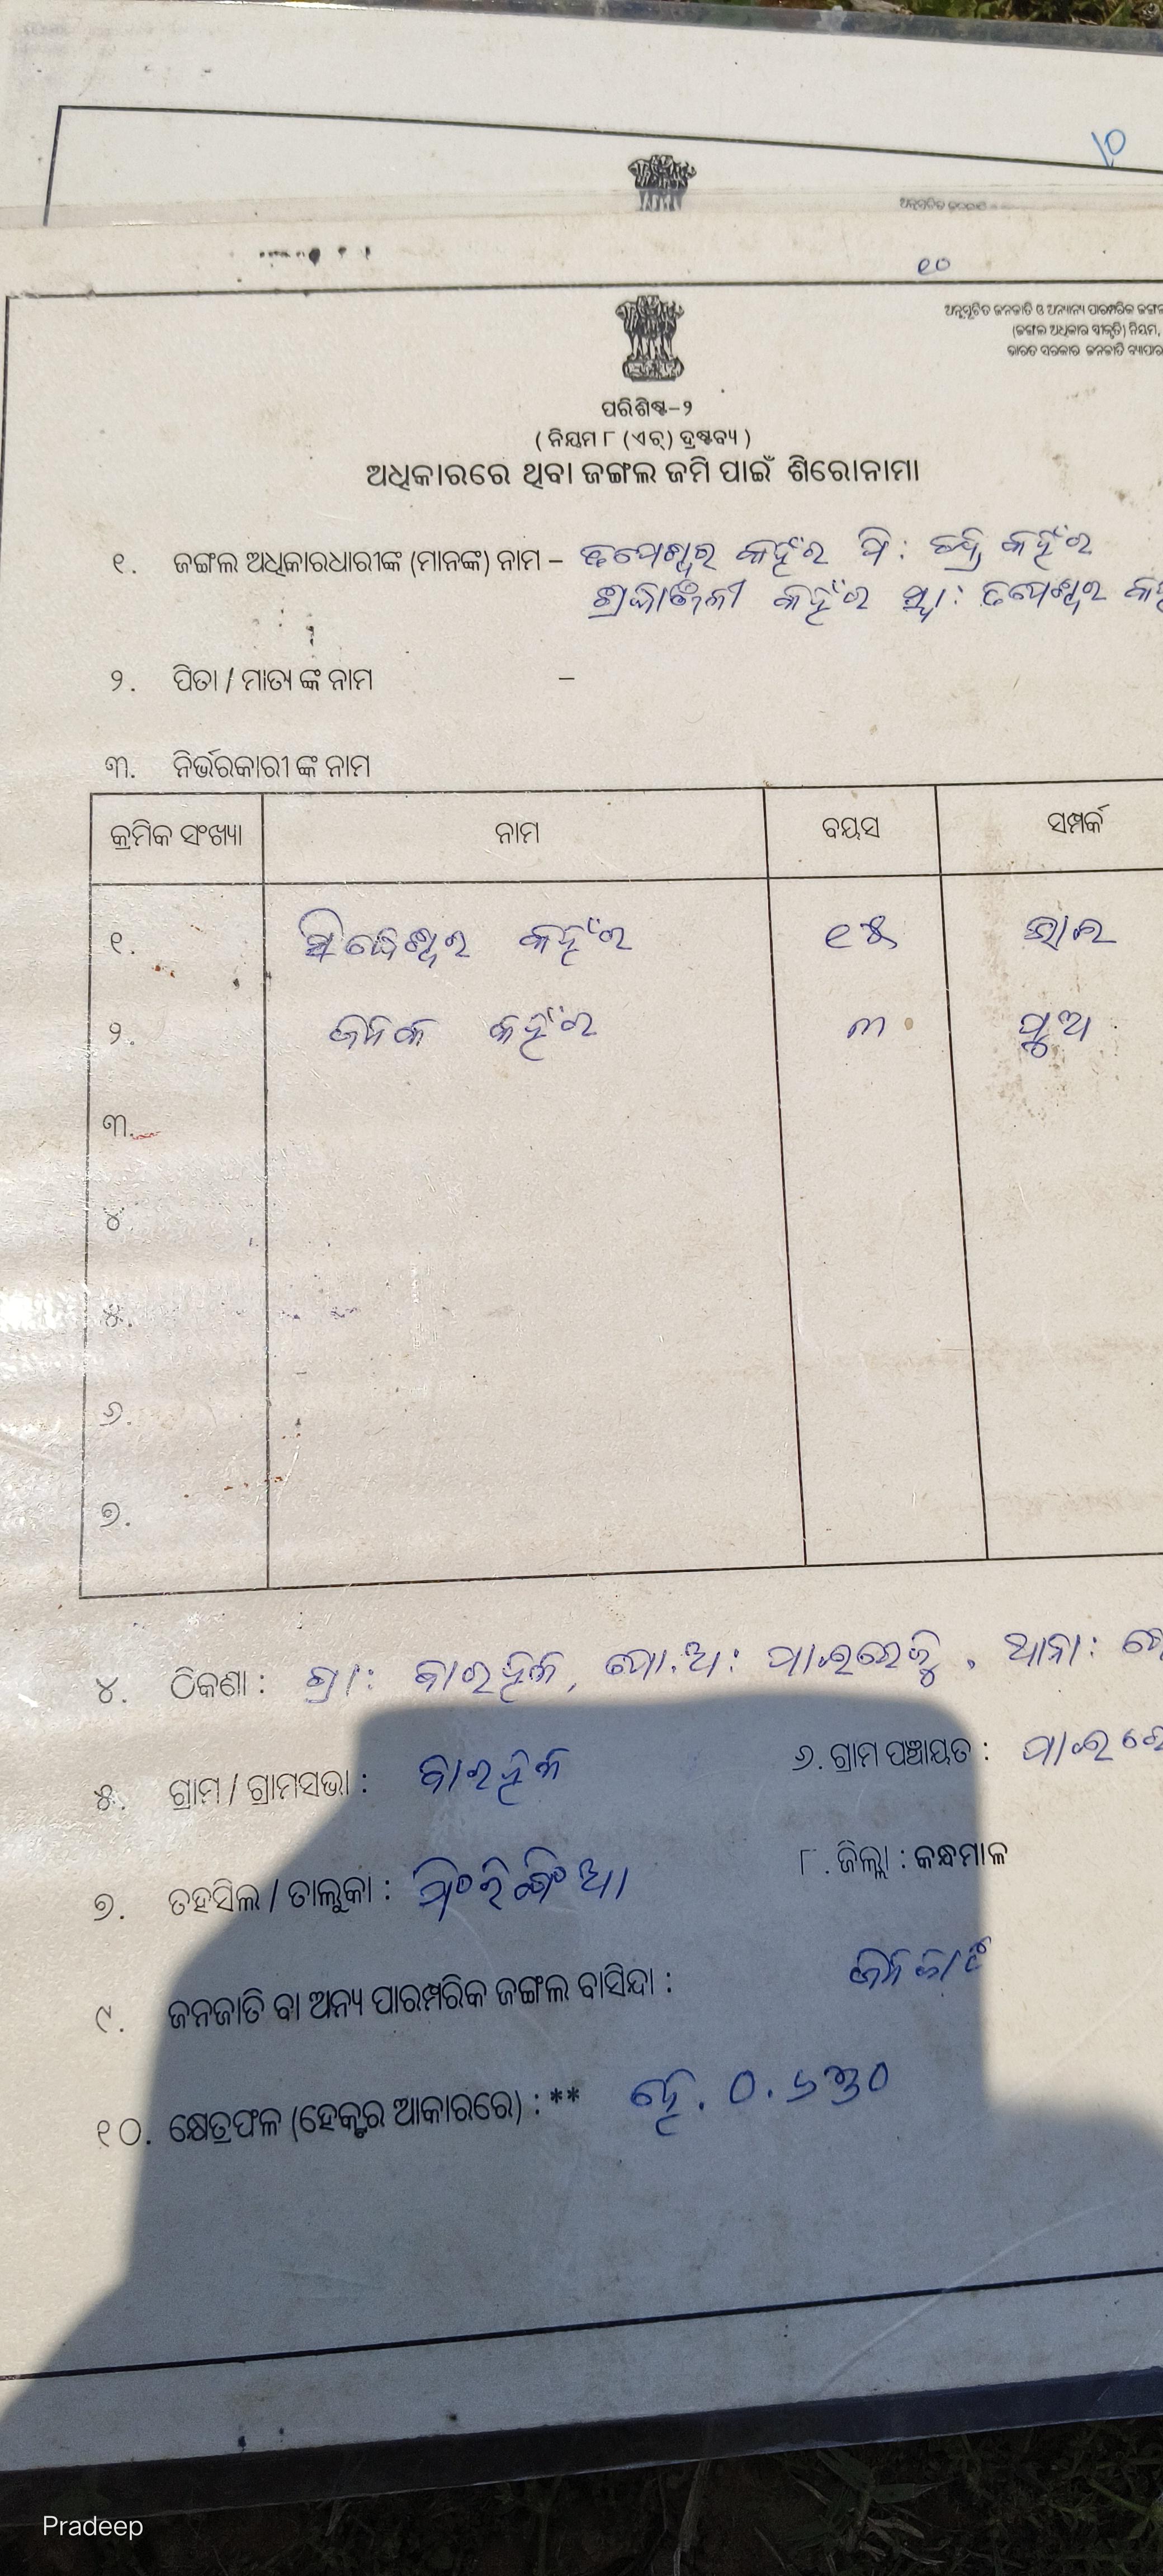 ୧୦
ଅନୁସୂଚିତ ଜନଜାତି
୧୦
ଅନୁସୂଚିତ ଜନଜାତି ଓ ଅନ୍ୟାନ୍ୟ ପାରମ୍ପରିକ ଜଙ୍ଗଲ
(ଜଙ୍ଗଲ ଅଧିକାର ସ୍ୱୀକୃତି) ନିୟମ,
ଭାରତ ସରକାର ଜନଜାତି ବ୍ୟାପାର
ପରିଶିଷ୍ଟ-୨
( ନିୟମ ୮ (ଏଚ୍) ଦ୍ରଷ୍ଟବ୍ୟ )
ଅଧିକାରରେ ଥିବା ଜଙ୍ଗଲ ଜମି ପାଇଁ ଶିରୋନାମା
୧. ଜଙ୍ଗଲ ଅଧିକାରଧାରୀଙ୍କ (ମାନଙ୍କ) ନାମ – କହଁର ପି: କହଁର
କହଁର ସ୍ୱା:
୨. ପିତା / ମାତା ଙ୍କ ନାମ –
୩. ନିର୍ଭରକାରୀ ଙ୍କ ନାମ
କ୍ରମିକ ସଂଖ୍ୟା ନାମ ବୟସ ସମ୍ପର୍କ
୧. ସିଦ୍ଧେଶ୍ୱର କହଁର ୧୫ ଭାଇ
୨. କହଁର ୩ ପୁଅ
୩.
୪
୫.
୬.
୭.
୪. ଠିକଣା : ଗ୍ରା: ପୋ.ଅ: ଥାନା:
୫. ଗ୍ରାମ / ଗ୍ରାମସଭା : ୬. ଗ୍ରାମ ପଞ୍ଚାୟତ :
୭. ତହସିଲ / ତାଲୁକା : ଫିରିଙ୍ଗିଆ ୮. ଜିଲ୍ଲା : କନ୍ଧମାଳ
୯. ଜନଜାତି ବା ଅନ୍ୟ ପାରମ୍ପରିକ ଜଙ୍ଗଲ ବାସିନ୍ଦା : ଜନଜାତି
୧୦. କ୍ଷେତ୍ରଫଳ (ହେକ୍ଟର ଆକାରରେ) : ** ହେ. ୦.୬୩୦
Pradeep